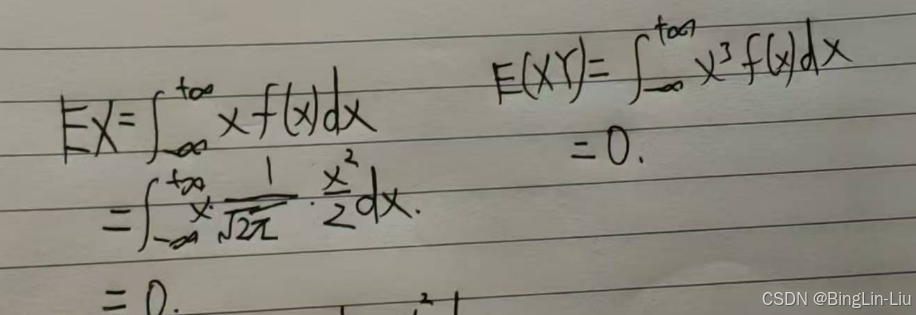 EX = ∫_{-∞}^{+∞} x f(x) dx
= ∫_{-∞}^{+∞} x · 1/√(2π) · x²/2 dx.
= 0.
E(XY) = ∫_{-∞}^{+∞} x³ f(x) dx
= 0.
CSDN @BingLin-Liu